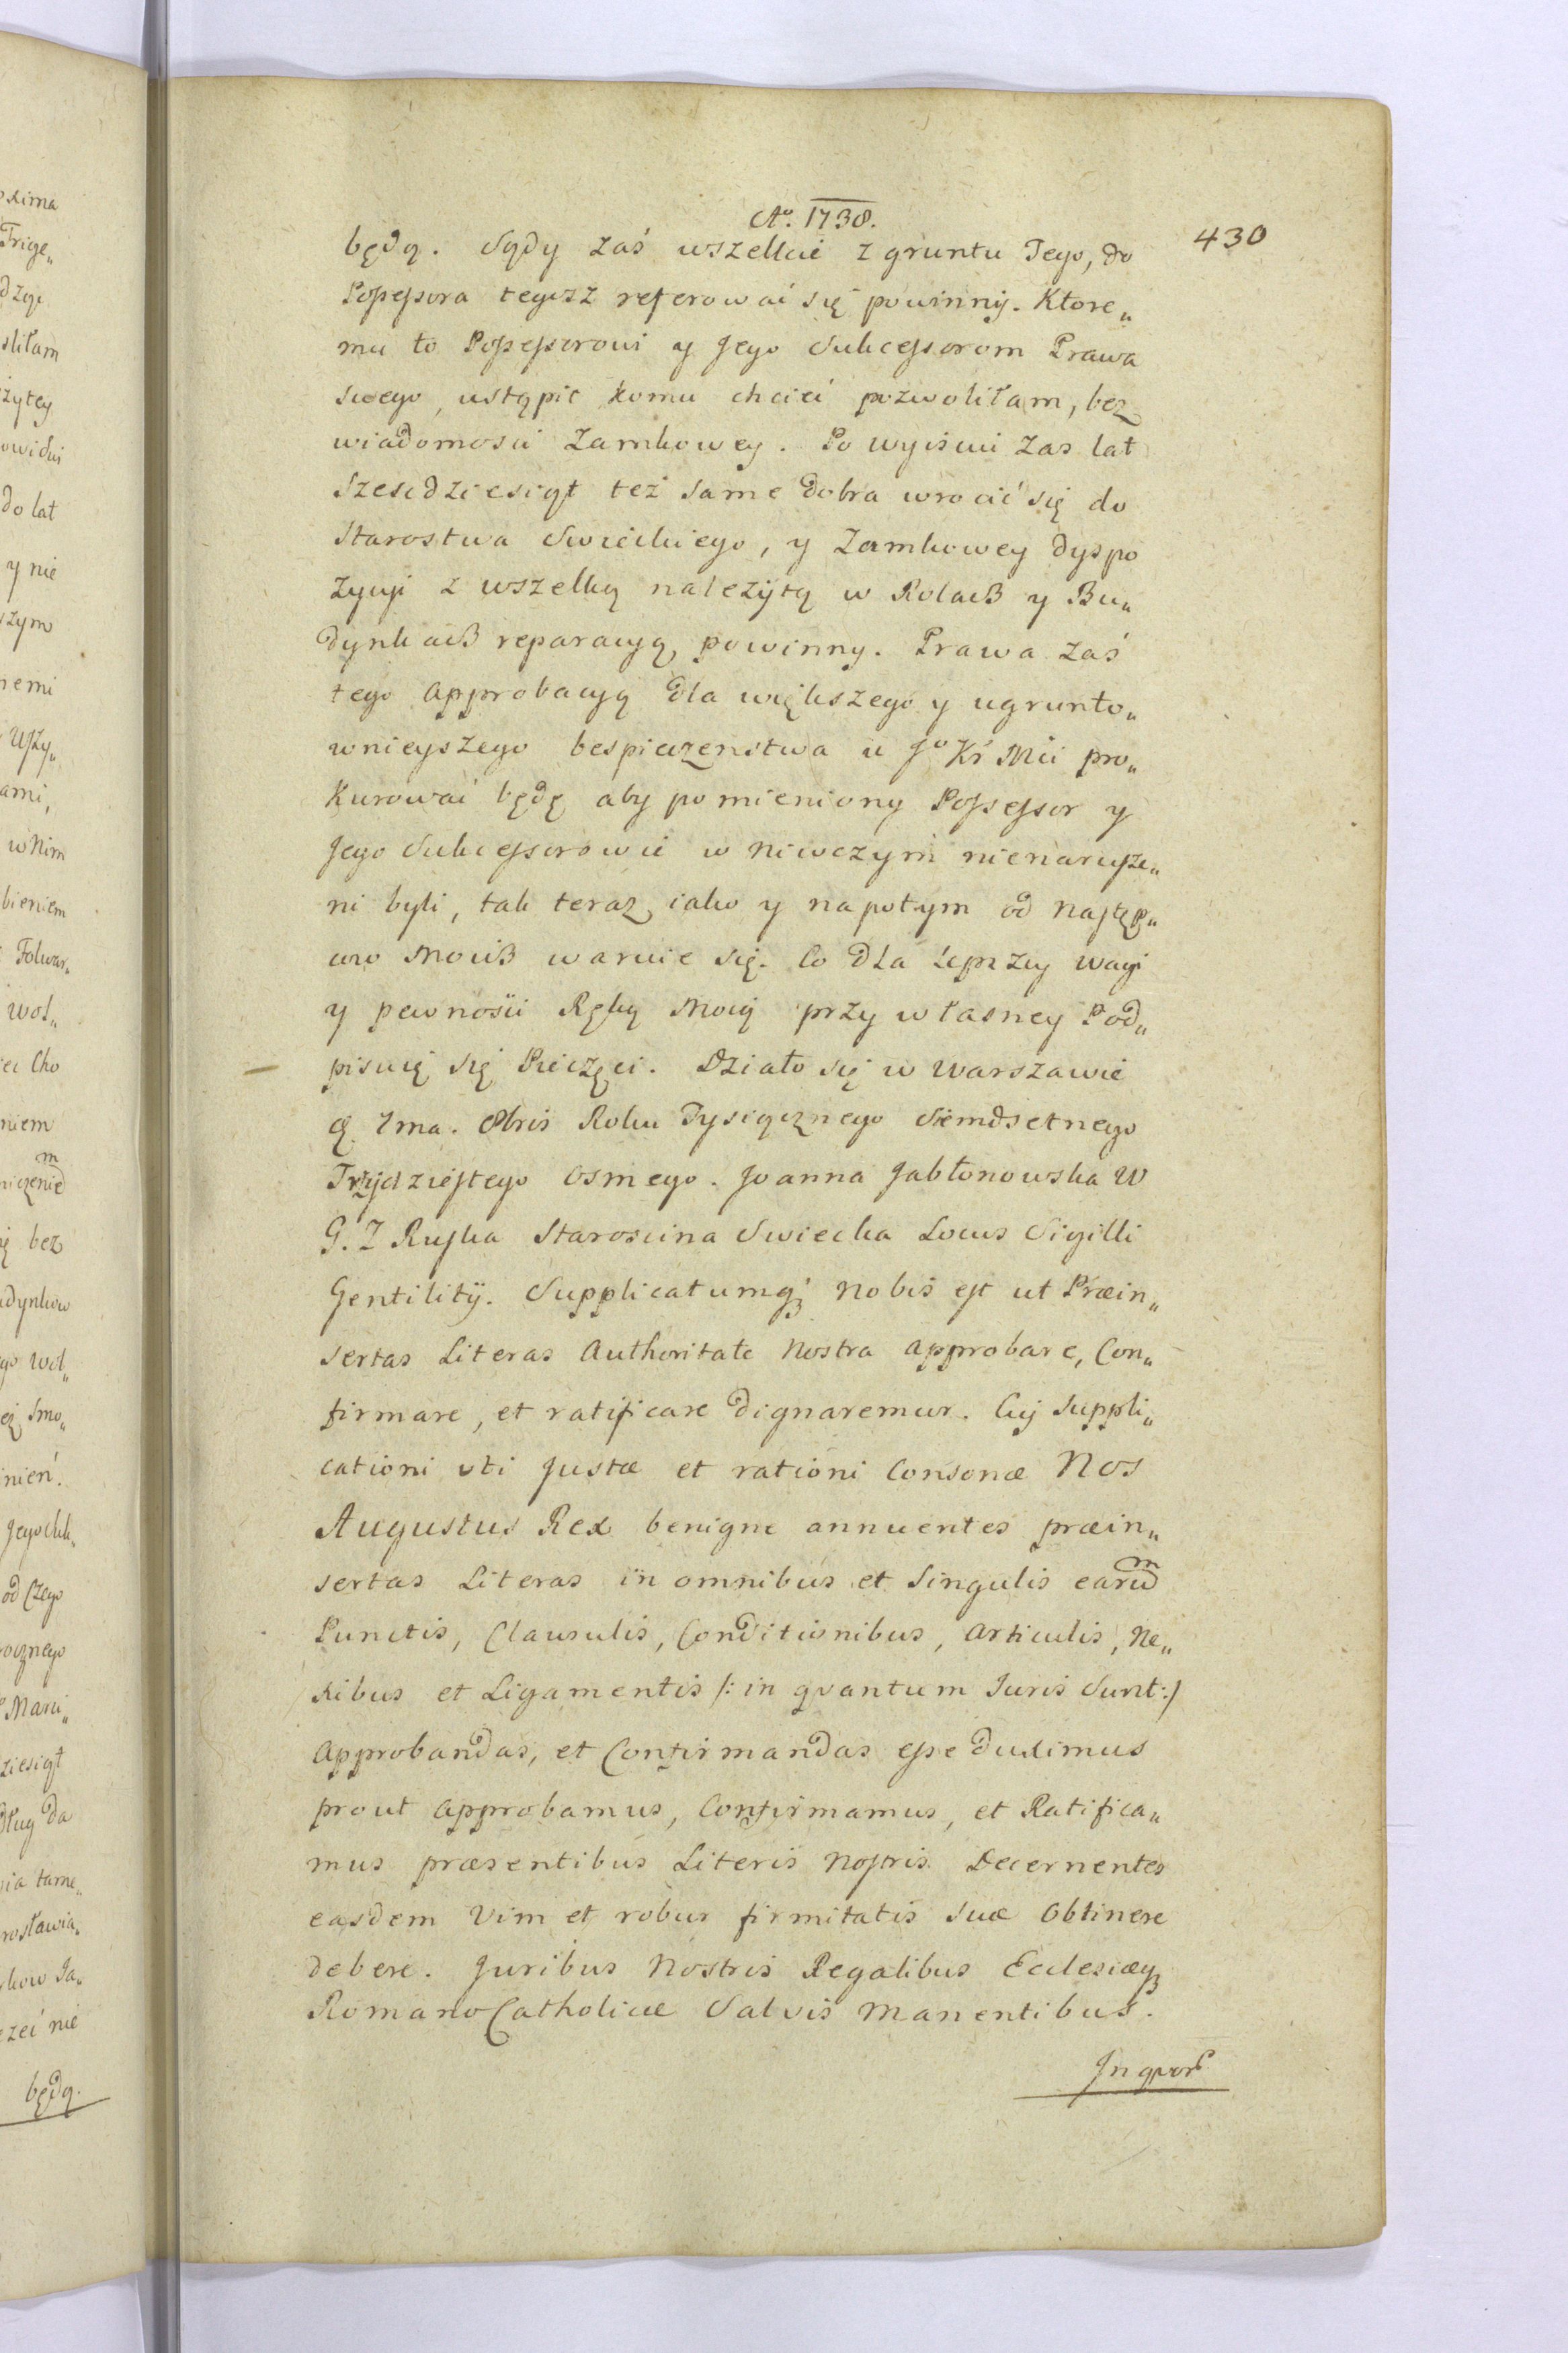 Aº. 1738.
430
będą. Sądy zaś wszelkie z gruntu Tego, do
Possessora tegosz referować się powinny. Ktore„
mu to Possessorowi y Jego Sukcessorom Prawa
swego, ustąpic komu chcieć pozwoliłam, bez
wiadomości Zamkowey. Po wyiściu Zas lat
Szescdziesiąt też same Dobra wrocić się do
Starostwa Swieckiego, y Zamkowey dyspo
zycyi z wszelką należytą w Rolach y Bu„
dynkach reparacyą, powinny. Prawa zaś
tego approbacyą dla większego y ugrunto„
wnieyszego bespieczenstwa u Jº Kr Mci pro„
kurować będę aby pomieniony Possessor y
Jego Sukcessorowie w niwczym nienarusze„
ni byli, tak teraz, iako y napotym od Następ„
cow Moich waruie się. Co dla lepszey wagi
y pewności Ręką Moią przy własney Pod„
pisuię się Pieczęci. Działo się w Warszawie
d. 7ma. 8bris Roku Tysiącznego Siemdsetnego
Trzydziestego Osmego. Joanna Jabłonowska W
G. Z Ruska Starościna Swiecka Locus Sigilli
Gentilitÿ. Supplicatumq; Nobis est ut Præin„
sertas Literas Authoritate Nostra approbare, Con„
firmare, et ratificare dignaremur. Cuj Suppli„
cationi uti Justæ et rationi Consonæ Nos
Augustus Rex benigne annuentes præin„
sertas Literas in omnibus et Singulis earum
Punctis, Clausulis, Conditionibus, Articulis, Ne„
xibus et Ligamentis /: in quantum Juris Sunt :/
Approbandas, et Confirmandas esse duximus
prout approbamus, Confirmamus, et Ratifica„
mus præsentibus Literis Nostris. Decernentes
easdem Vim et robur firmitatis suæ Obtinere
debere. Juribus Nostris Regalibus Ecclesiæq;
Romano Catholicæ Salvis manentibus.
In quor
oxima
Trige„
sliłam
żytey
do lat
y nie
nemi
ami,
w Nim
bieniem
Folwar„
wol„
niem
bez
Smo„
od Czego
ocznego
ziesiąt
Dług da
nia tame„
rosławia„
będą.